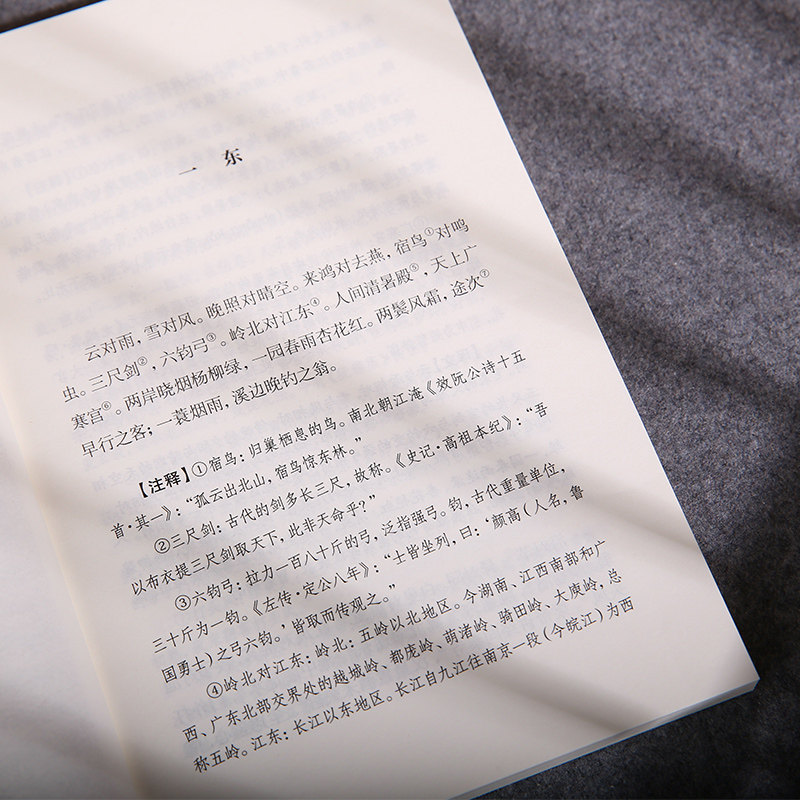 一 东
云对雨，雪对风。晚照对晴空。来鸿对去燕，宿鸟①对鸣
虫。三尺剑②，六钧弓③。岭北对江东④。人间清暑殿⑤，天上广
寒宫⑥。两岸晓烟杨柳绿，一园春雨杏花红。两鬓风霜，途次⑦
早行之客；一蓑烟雨，溪边晚钓之翁。
【注释】①宿鸟：归巢栖息的鸟。南北朝江淹《效阮公诗十五
首·其一》：“孤云出北山，宿鸟惊东林。”
②三尺剑：古代的剑多长三尺，故称。《史记·高祖本纪》：“吾
以布衣提三尺剑取天下，此非天命乎？”
③六钧弓：拉力一百八十斤的弓，泛指强弓。钧，古代重量单位，
三十斤为一钧。《左传·定公八年》：“士皆坐列，曰：‘颜高（人名，鲁
国勇士）之弓六钧。’皆取而传观之。”
④岭北对江东：岭北：五岭以北地区。今湖南、江西南部和广
西、广东北部交界处的越城岭、都庞岭、萌渚岭、骑田岭、大庾岭，总
称五岭。江东：长江以东地区。长江自九江往南京一段（今皖江）为西